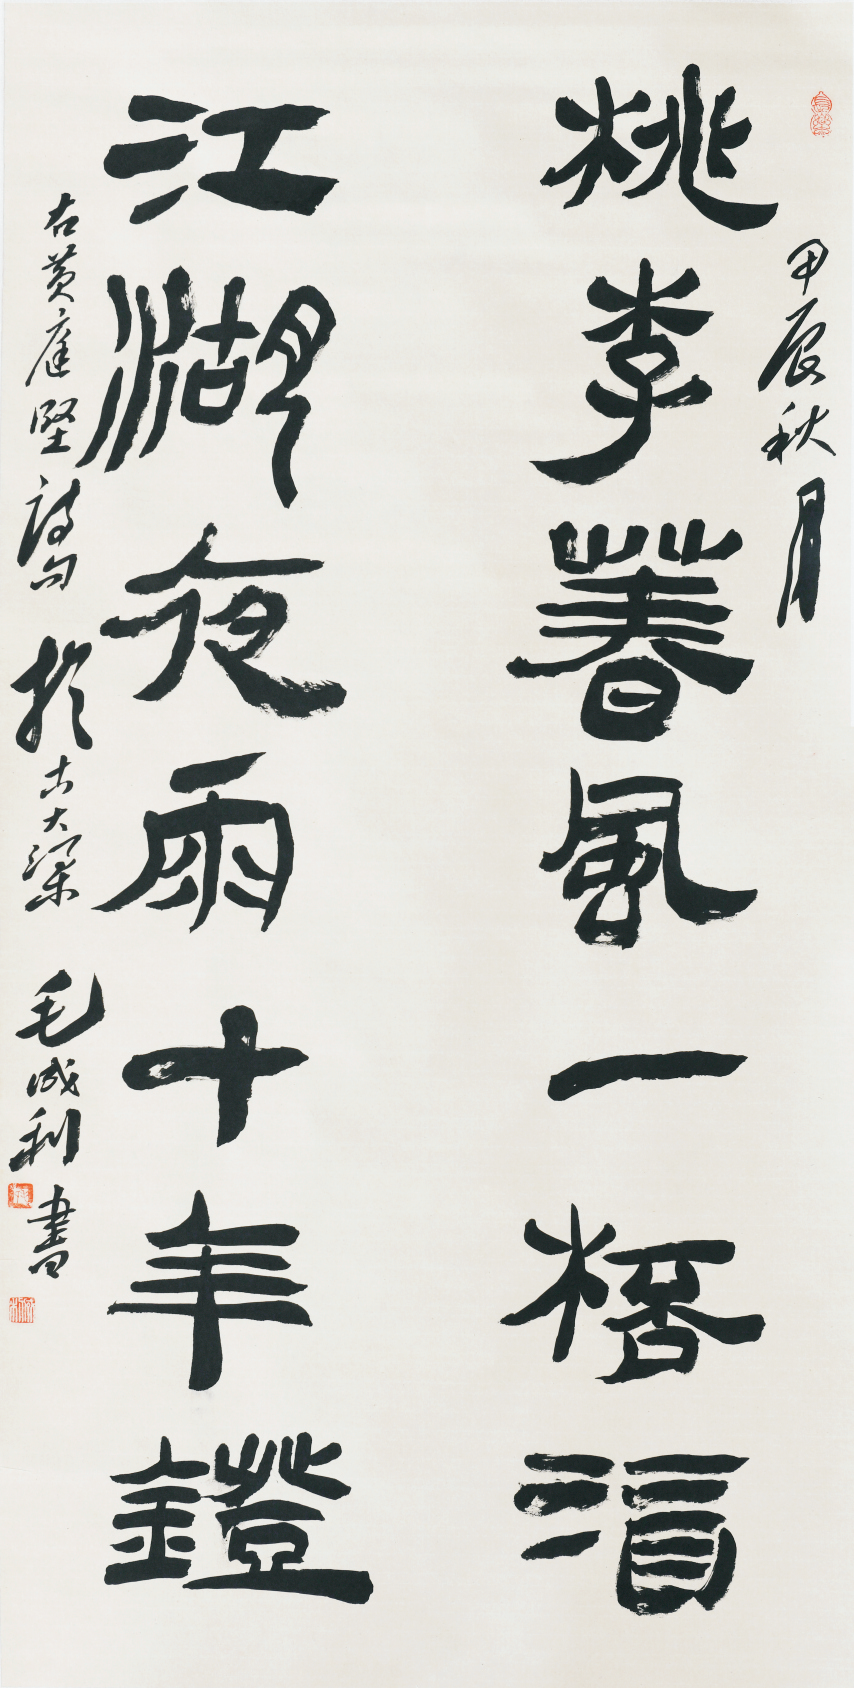 甲辰秋月
桃李春風一桮酒
江湖夜雨十年鐙
右黄庭堅詩句於古大梁毛成利書